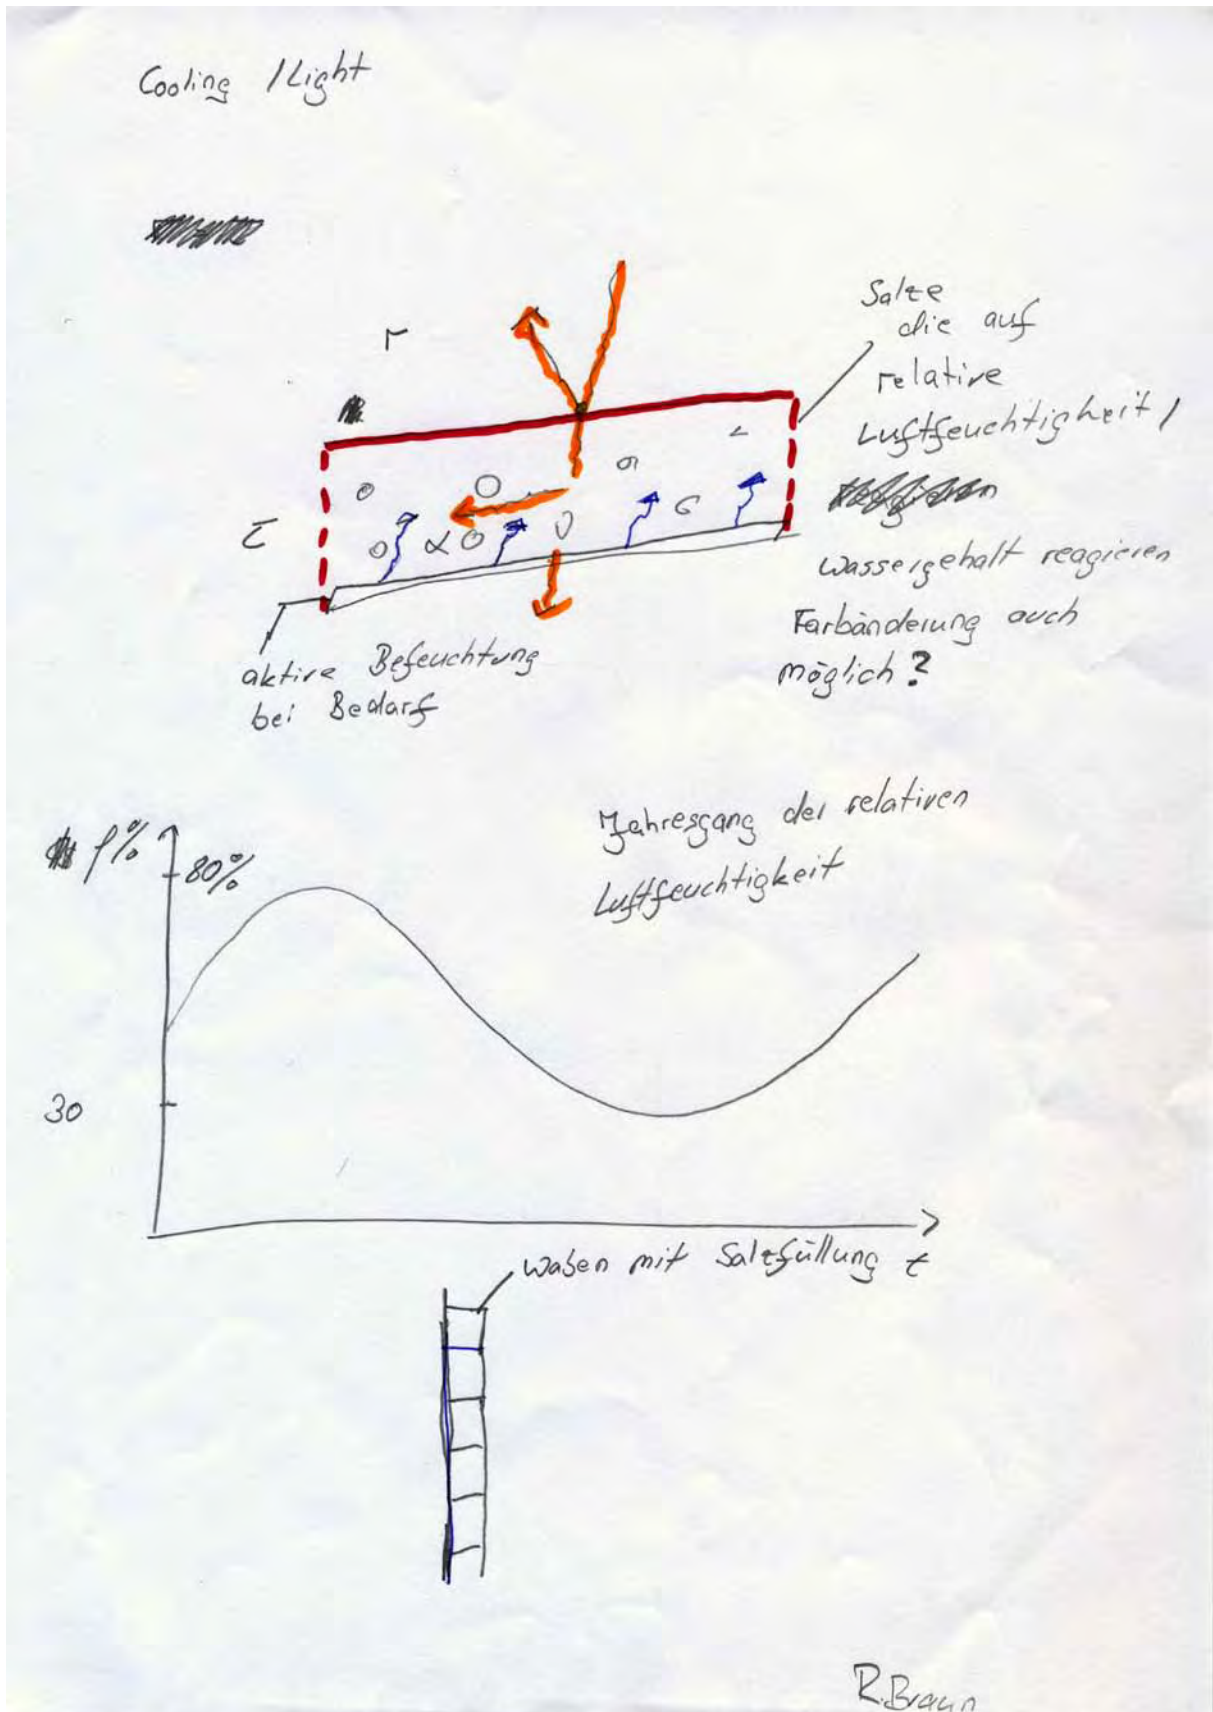 Cooling / Light
r
Salze
die auf
relative
Luftfeuchtigkeit /
τ
α
wassergehalt reagieren
Farbänderung auch
möglich?
aktive Befeuchtung
bei Bedarf
Jahresgang der relativen
Luftfeuchtigkeit
f%
80%
30
waben mit Salzfüllung
t
R.Braun